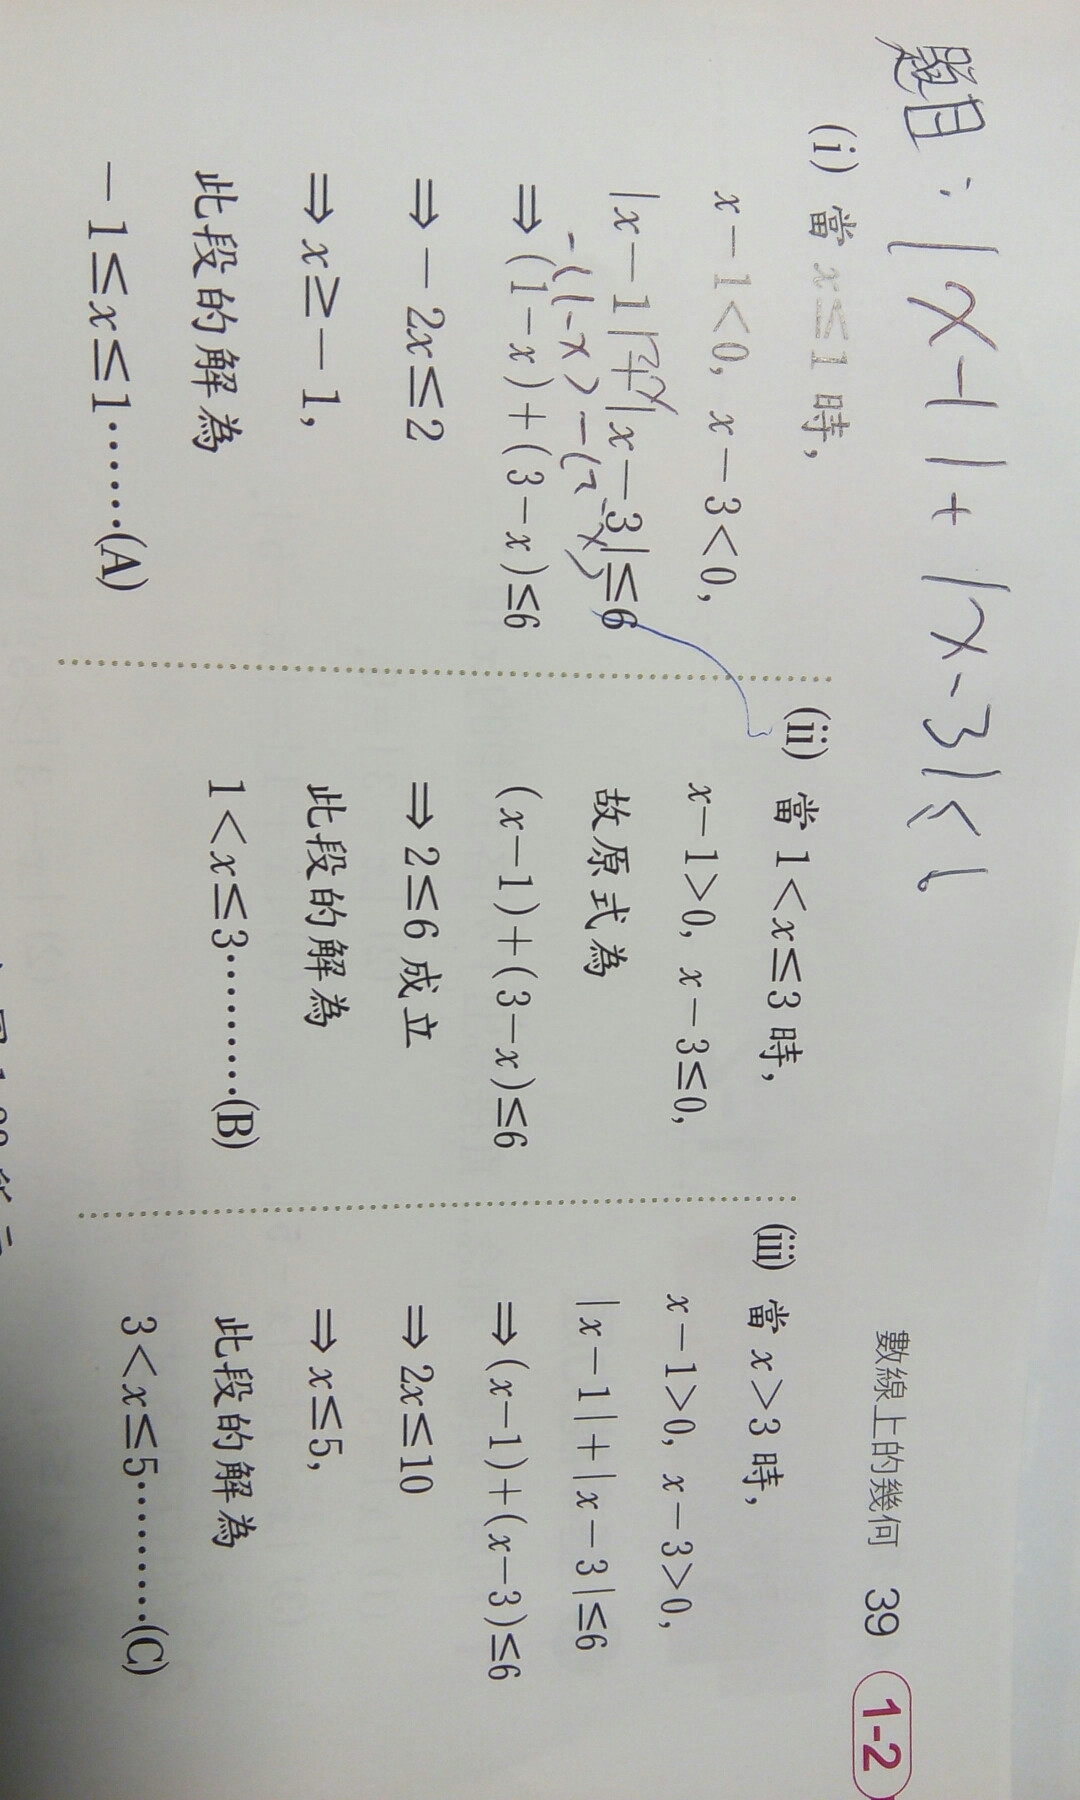 數線上的幾何 39 1-2
題目：|x-1|+|x-3|≤
(i) 當 x≤1 時，
x－1<0, x－3<0,
|x－1|+|x－3|≤6
-(1-x)-(
⇒(1－x)+(3－x)≤6
⇒－2x≤2
⇒x≥－1,
此段的解為
－1≤x≤1……(A)
(ii) 當 1<x≤3 時，
x－1>0, x－3≤0,
故原式為
(x－1)+(3－x)≤6
⇒2≤6 成立
此段的解為
1<x≤3………(B)
(iii) 當 x>3 時，
x－1>0, x－3>0,
|x－1|+|x－3|≤6
⇒(x－1)+(x－3)≤6
⇒2x≤10
⇒x≤5,
此段的解為
3<x≤5………(C)